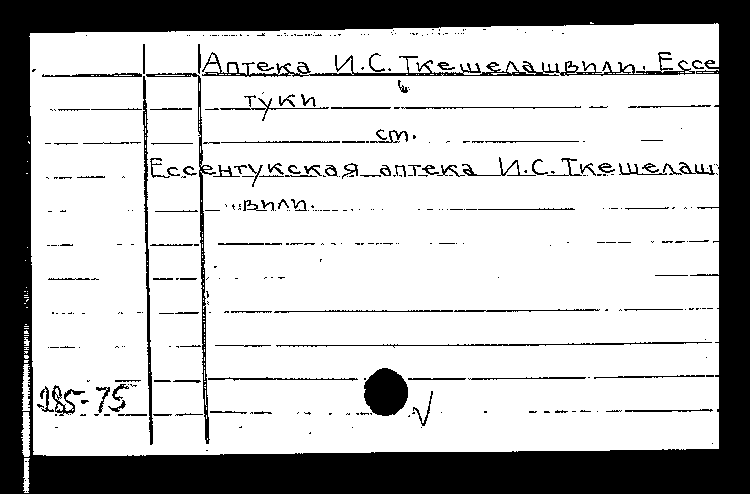 Аптека И.С. Ткешелашвили. Ессе
туки
ст.
Ессентукская аптека И.С. Ткешелаш
вили.
285-75